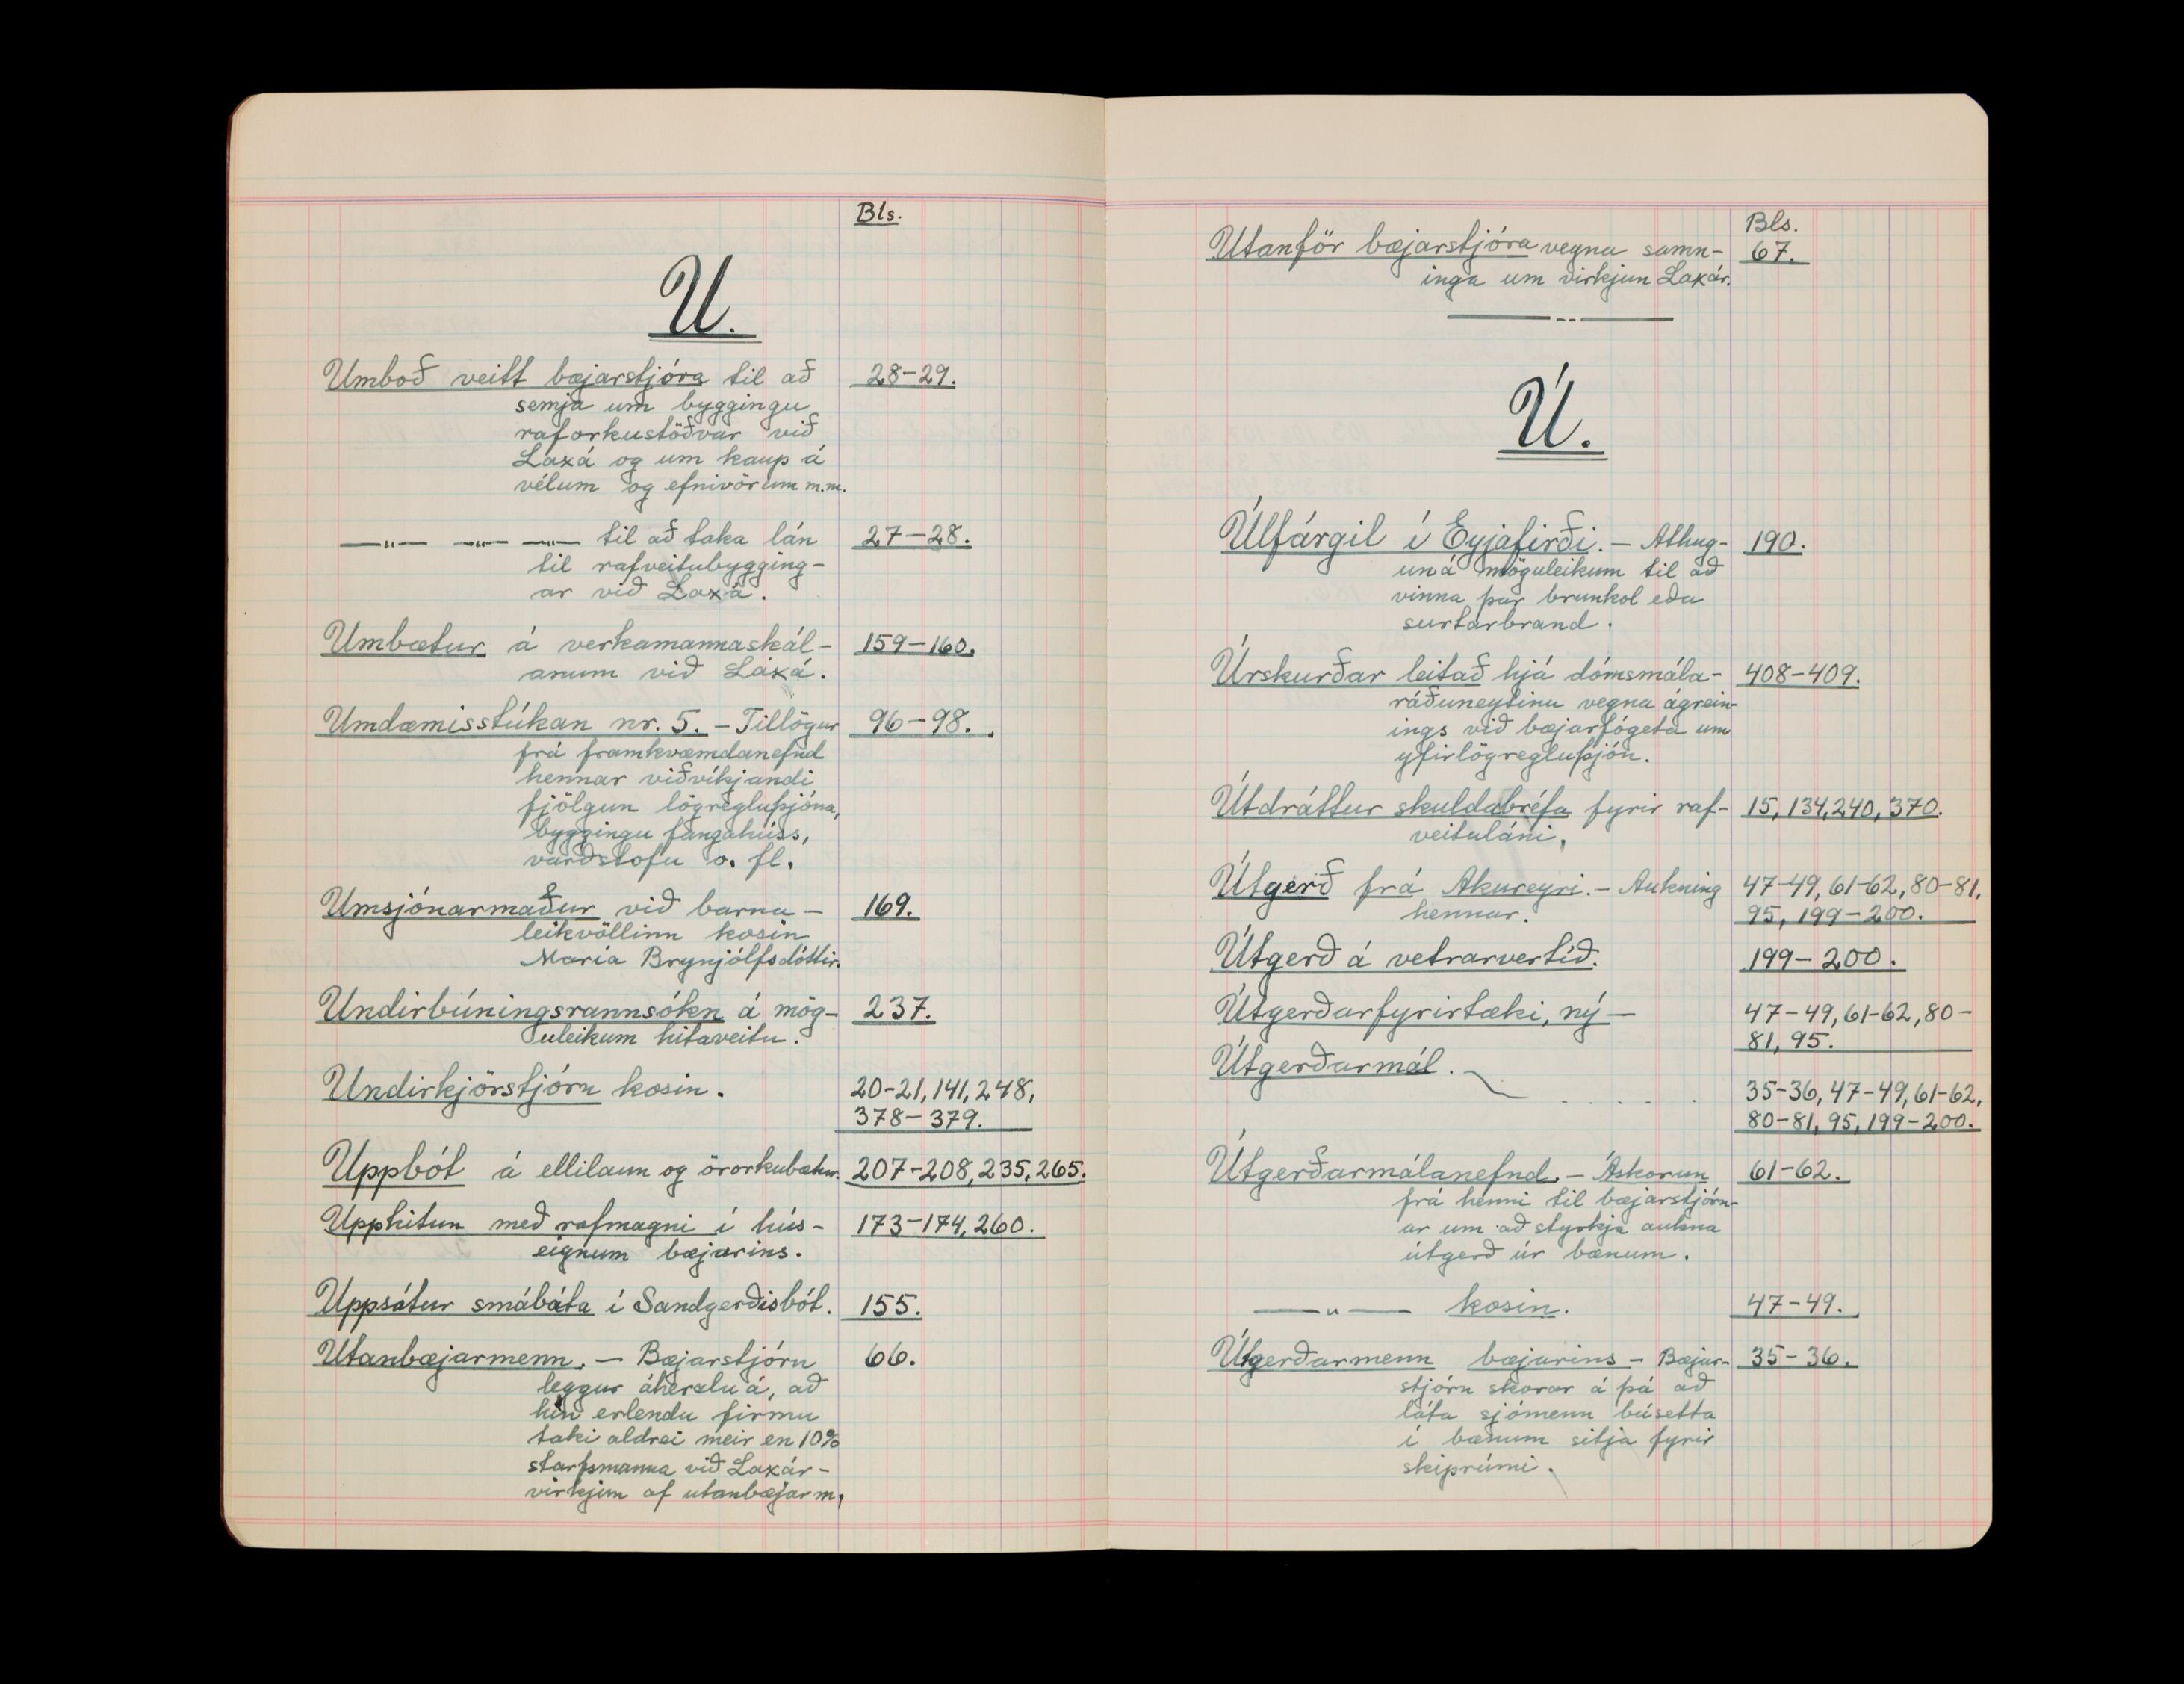 Bls.
U.
Umboð veitt bæjarstjóra til að 28-29.
semja um byggingu
raforkustöðvar við
Laxá og um kaup á
vélum og efnivörum m.m.
—„— —„— —„— til að taka lán 27-28.
til rafveitubygging-
ar við Laxá.
Umbætur á verkamannaskál- 159-160.
anum við Laxá.
Umdæmisstúkan nr. 5. - Tillögur 96-98.
frá framkvæmdanefnd
hennar viðvíkjandi
fjölgun lögregluþjóna,
byggingu fangahúss,
varðstofu o. fl.
Umsjónarmaður við barna- 169.
leikvöllinn kosin
María Brynjólfsdóttir.
Undirbúningsrannsókn á mög- 237.
uleikum hitaveitu.
Undirkjörstjórn kosin. 20-21, 141, 248,
378-379.
Uppbót á ellilaun og örorkubætur. 207-208, 235, 265.
Upphitun með rafmagni í hús- 173-174, 260.
eignum bæjarins.
Uppsátur smábáta í Sandgerðisbót. 155.
Utanbæjarmenn. - Bæjarstjórn 66.
leggur áherzlu á, að
hin erlendu firmu
taki aldrei meir en 10%
starfsmanna við Laxár-
virkjun af utanbæjarm.
Bls.
Utanför bæjarstjóra vegna samn- 67.
inga um virkjun Laxár.
Ú.
Úlfárgil í Eyjafirði. - Athug- 190.
un á möguleikum til að
vinna þar brunkol eða
surtarbrand.
Úrskurðar leitað hjá dómsmála- 408-409.
ráðuneytinu vegna ágrein-
ings við bæjarfógeta um
yfirlögregluþjón.
Útdráttur skuldabréfa fyrir raf- 15, 134, 240, 370.
veituláni.
Útgerð frá Akureyri. - Aukning 47-49, 61-62, 80-81,
hennar. 95, 199-200.
Útgerð á vetrarvertíð. 199-200.
Útgerðarfyrirtæki, ný- 47-49, 61-62, 80-
81, 95.
Útgerðarmál. . . . . .
35-36, 47-49, 61-62,
80-81, 95, 199-200.
Útgerðarmálanefnd. - Áskorun 61-62.
frá henni til bæjarstjórn-
ar um að styrkja aukna
útgerð úr bænum.
—„— kosin. 47-49.
Útgerðarmenn bæjarins - Bæjar- 35-36.
stjórn skorar á þá að
láta sjómenn búsetta
í bænum sitja fyrir
skiprúmi.